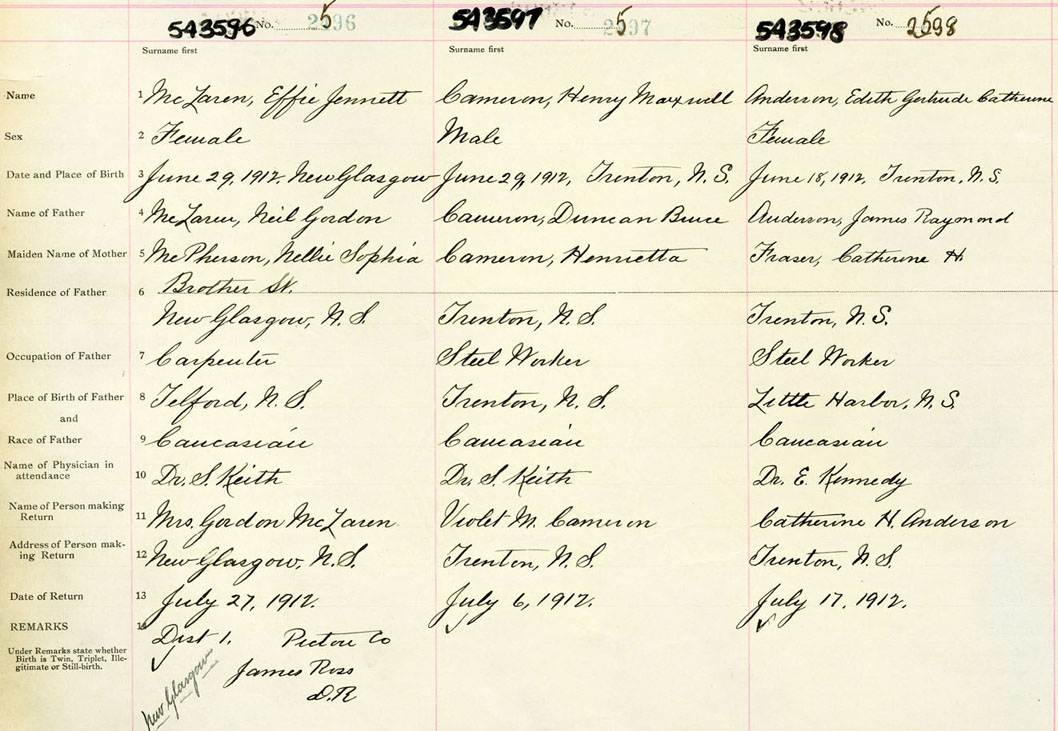 543596 No. 2596 543597 No. 2597 543598 No. 2598
Surname first Surname first Surname first
Name 1 McLaren, Effie Jennett Cameron, Henry Maxwell Anderson, Edith Gertrude Catherine
Sex 2 Female Male Female
Date and Place of Birth 3 June 29, 1912. New Glasgow June 29, 1912, Trenton, N.S. June 18, 1912, Trenton, N.S.
Name of Father 4 McLaren, Neil Gordon Cameron, Duncan Bruce Anderson, James Raymond
Maiden Name of Mother 5 McPherson, Nellie Sophia Cameron, Henrietta Fraser, Catherine H.
Residence of Father 6 Brother St.
New Glasgow, N.S. Trenton, N.S. Trenton, N.S.
Occupation of Father 7 Carpenter Steel Worker Steel Worker
Place of Birth of Father 8 Telford, N.S. Trenton, N.S. Little Harbor, N.S.
and
Race of Father 9 Caucasian Caucasian Caucasian
Name of Physician in
attendance 10 Dr. S. Keith Dr. S. Keith Dr. E. Kennedy
Name of Person making
Return 11 Mrs. Gordon McLaren Violet M. Cameron Catherine H. Anderson
Address of Person mak-
ing Return 12 New Glasgow, N.S. Trenton, N.S. Trenton, N.S.
Date of Return 13 July 27, 1912. July 6, 1912. July 17, 1912.
REMARKS 14 Dist 1. Pictou Co
Under Remarks state whether
Birth is Twin, Triplet, Ille-
gitimate or Still-birth.
James Ross
D.R
New Glasgow